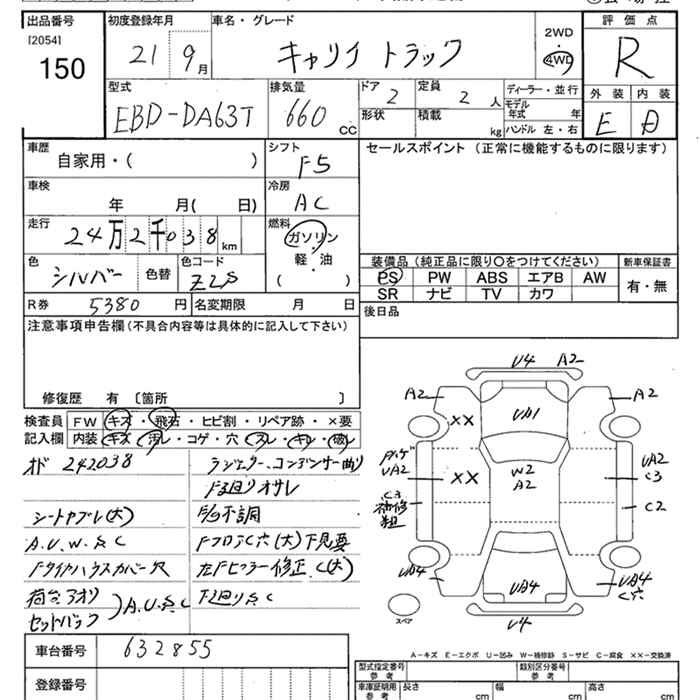 出品番号 初度登録年月 車名・グレード 評価点
[2054] 150 21 9月 キャリイ トラック 2WD 4WD R
型式 排気量 ドア 定員 ディーラー・並行 外装 内装
EBD-DA63T 660cc 2 2人 モデル年式 年 E D
形状 積載 kg ハンドル 左・右
車歴 シフト セールスポイント (正常に機能するものに限ります)
自家用・( ) F5
車検 冷房
年 月( 日) AC
走行 燃料
24万2千038km ガソリン
軽・油
( )
色 色替 色コード 装備品 (純正品に限り○をつけてください) 新車保証書
シルバー Z2S PS PW ABS エアB AW 有・無
SR ナビ TV カワ
R券 5380円 名変期限 月 日 後日品
注意事項申告欄 (不具合内容等は具体的に記入して下さい)
修復歴 有 〔箇所 〕
検査員 FW キズ・飛石・ヒビ割・リペア跡・×要
記入欄 内装 キズ・汚レ・コゲ・穴・スレ・キレ・破レ
オド 242038 ラジエター、コンデンサー曲り
F廻りオサレ
シートヤブレ(大) 不調
A.U.W.S.C FフロアC穴(大)下見要
FタイヤハウスカバーЖ穴 左Fピラー修正、C(大)
荷台アオリ
セットバック )A.U.S.C 下廻りS.C
U4 A2
A2 A2
×× UA1
UA2 ×× W2 A2 UA2
C3 C3
補修粗 C2
UA4 UA4 UA4
C穴
スペア U4
A-キズ E-エクボ U-凹み W-補修跡 S-サビ C-腐食 ××-交換済
車台番号 632855
型式指定番号 類別区分番号
参考 参考
登録番号 車庫証明用 長さ 幅 高さ
参考 cm cm cm